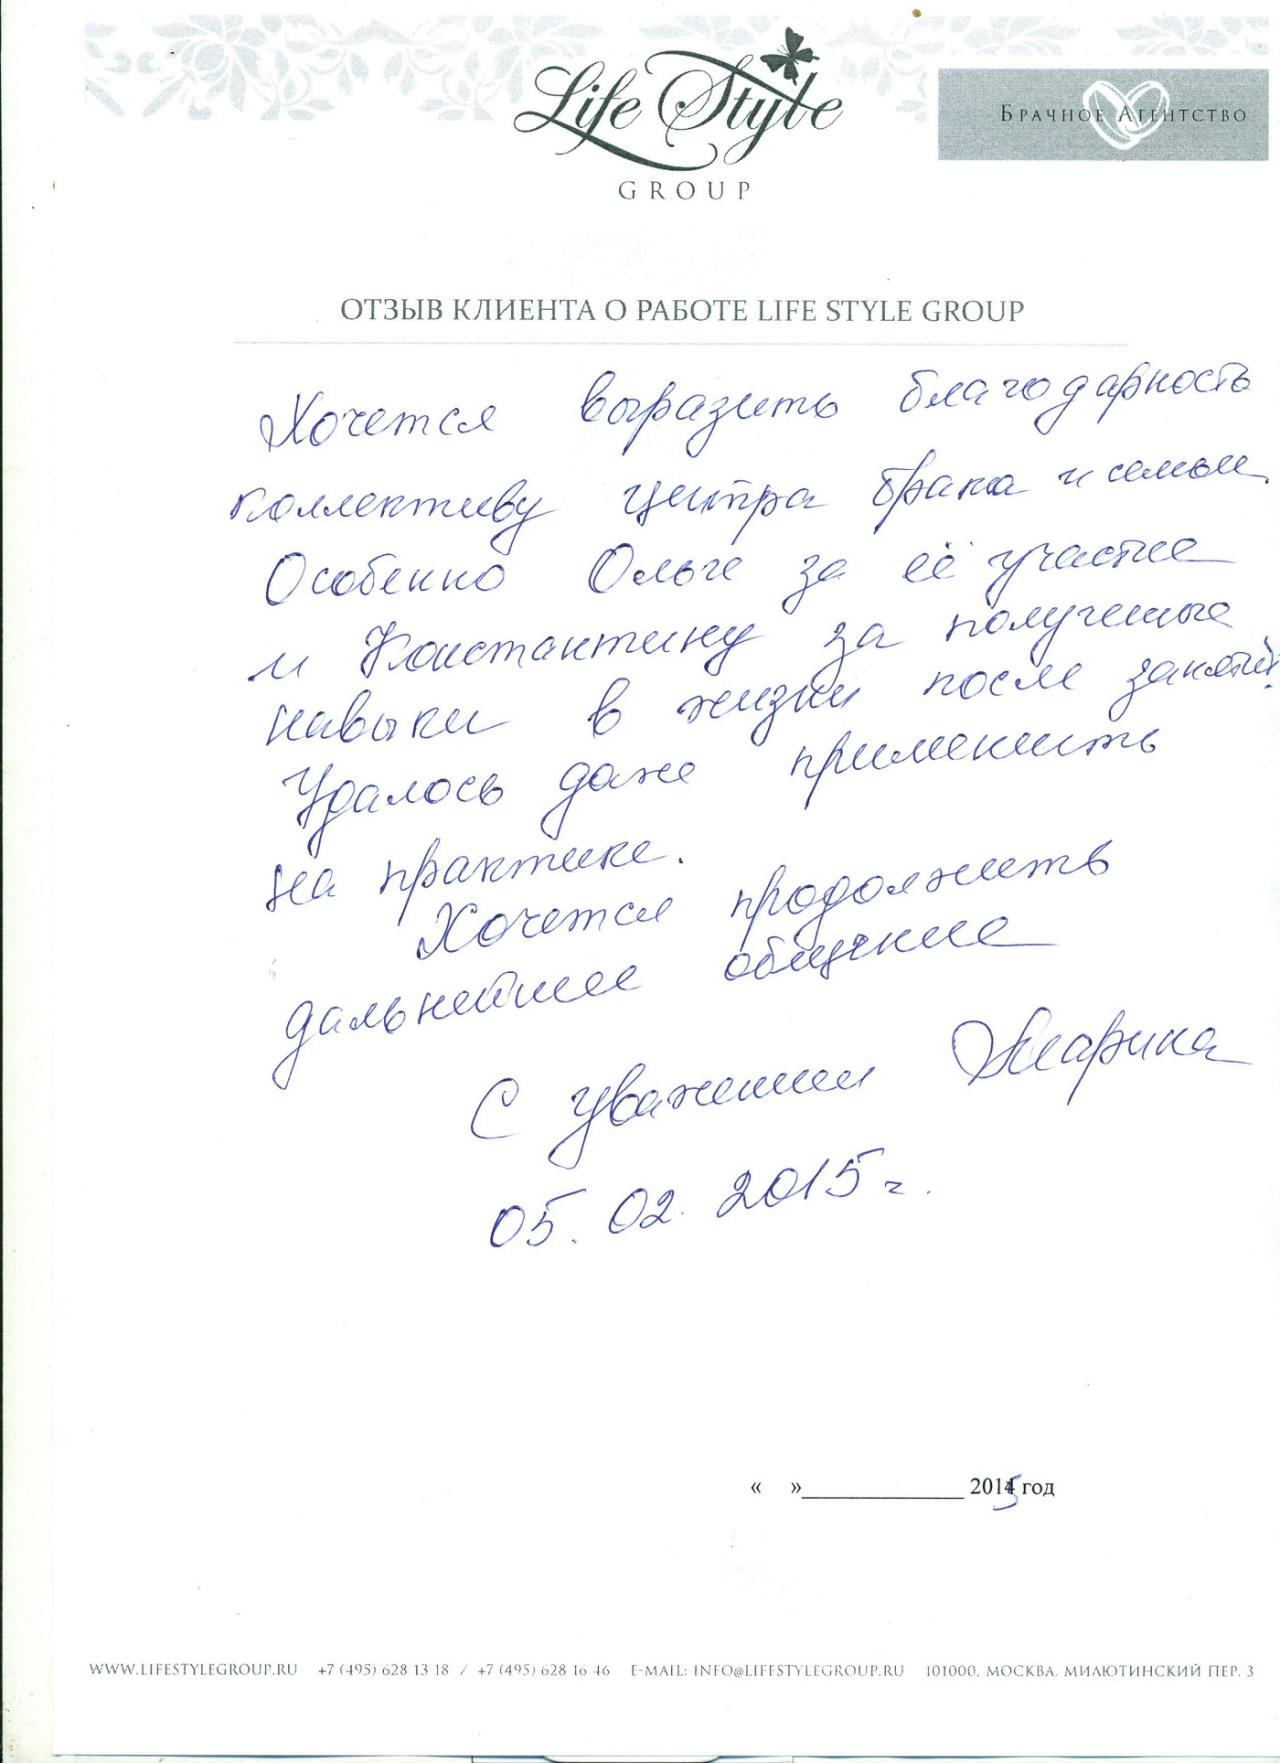 Life Style
GROUP
БРАЧНОЕ АГЕНТСТВО
ОТЗЫВ КЛИЕНТА О РАБОТЕ LIFE STYLE GROUP
Хочется выразить благодарность
коллективу центра брака и семьи.
Особенно Ольге за её участие
и Константину за полученные
навыки в жизни после занятий.
Удалось даже применить
на практике.
Хочется продолжить
дальнейшее общение
С уважением Марина
05.02.2015 г.
« »______________ 2015 год
WWW.LIFESTYLEGROUP.RU +7 (495) 628 13 18 / +7 (495) 628 16 46 E-MAIL: INFO@LIFESTYLEGROUP.RU 101000, МОСКВА, МИЛЮТИНСКИЙ ПЕР. 3